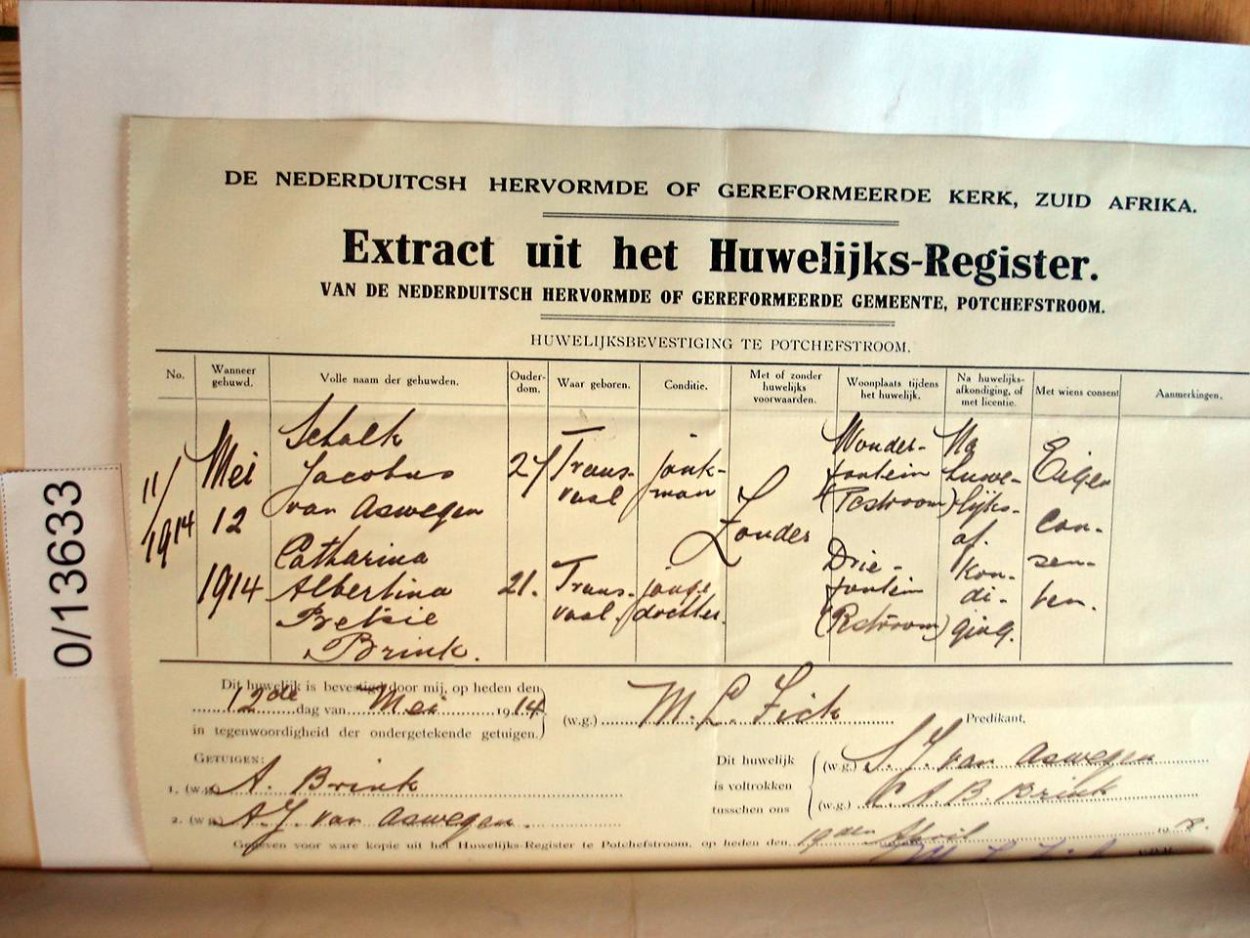 DE NEDERDUITCSH HERVORMDE OF GEREFORMEERDE KERK, ZUID AFRIKA.
Extract uit het Huwelijks-Register.
VAN DE NEDERDUITSCH HERVORMDE OF GEREFORMEERDE GEMEENTE, POTCHEFSTROOM.
HUWELIJKSBEVESTIGING TE POTCHEFSTROOM.
No.
Wanneer
gehuwd.
Volle naam der gehuwden.
Ouder-
dom.
Waar geboren.
Conditie.
Met of zonder
huwelijks
voorwaarden.
Woonplaats tijdens
het huwelijk.
Na huwelijks-
afkondiging, of
met licentie.
Met wiens consent
Aanmerkingen.
11/
1914
Mei
12
1914
Schalk
Jacobus
van Aswegen
27
Trans-
vaal
jonk-
man
Catharina
Albertina
Betsie
Brink.
21.
Trans-
vaal.
jonge
dochter.
Zonder
Wonder-
fontein
(Pcstroom)
Drie-
fontein
(Pcstroom)
Na
huwe-
lijks-
af-
kon-
di-
ging.
Eigen
con-
sen-
ten.
Dit huwelijk is bevestigd door mij, op heden den
12de dag van Mei 1914
in tegenwoordigheid der ondergetekende getuigen.
(w.g.) M. L. Fick Predikant.
GETUIGEN:
1. (w.g.) A. Brink
2. (w.g.) A.J. van Aswegen.
Dit huwelijk
is voltrokken
tusschen ons
(w.g.) S. J. van Aswegen
(w.g.) C. A. B. Brink
Gegeven voor ware kopie uit het Huwelijks-Register te Potchefstroom, op heden den 19den April
0/13633